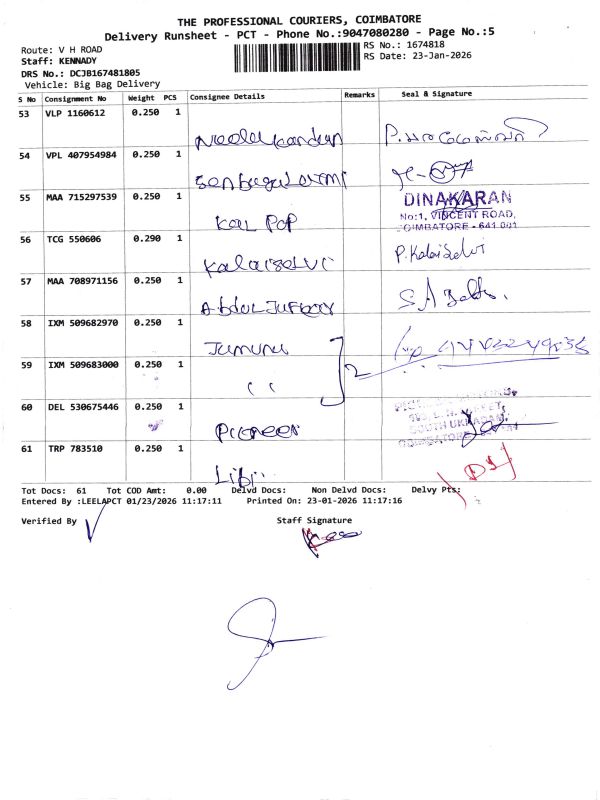 THE PROFESSIONAL COURIERS, COIMBATORE
Delivery Runsheet - PCT - Phone No.:9047080280 - Page No.:5
Route: V H ROAD
RS No.: 1674818
Staff: KENNADY
RS Date: 23-Jan-2026
DRS No.: DCJB167481805
Vehicle: Big Bag Delivery
S No Consignment No Weight PCS Consignee Details Remarks Seal & Signature
53 VLP 1160612 0.250 1
54 VPL 407954984 0.250 1
55 MAA 715297539 0.250 1 Kal Pop DINAKARAN
No:1, VINCENT ROAD,
COIMBATORE - 641 001
56 TCG 550606 0.290 1 Kalaiselvi P. Kalaiselvi
57 MAA 708971156 0.250 1 Abdul
58 IXM 509682970 0.250 1 Jamuna
59 IXM 509683000 0.250 1 ( ( 2
60 DEL 530675446 0.250 1 Pioneer SOUTH UKKADAM,
61 TRP 783510 0.250 1 Libi
Tot Docs: 61 Tot COD Amt: 0.00 Delvd Docs: Non Delvd Docs: Delvy Pts:
Entered By :LEELAPCT 01/23/2026 11:17:11 Printed On: 23-01-2026 11:17:16
Verified By Staff Signature